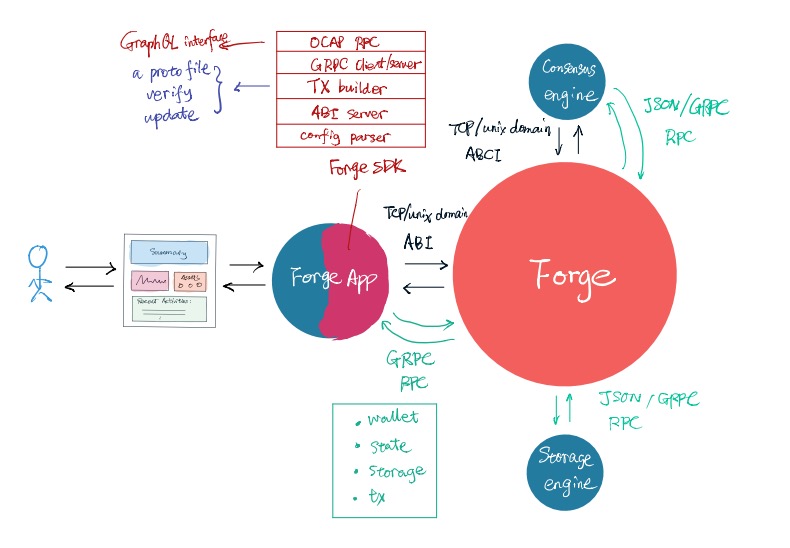 GraphQL interface
a proto file
verify
update
OCAP RPC
GRPC client/server
TX builder
ABI server
config parser
Forge SDK
Consensus
engine
TCP/unix domain
ABCI
JSON/GRPC
RPC
Summary
Assets
Recent Activities:
Forge App
TCP/unix domain
ABI
Forge
GRPC
RPC
• wallet
• state
• storage
• tx
JSON/GRPC
RPC
Storage
engine